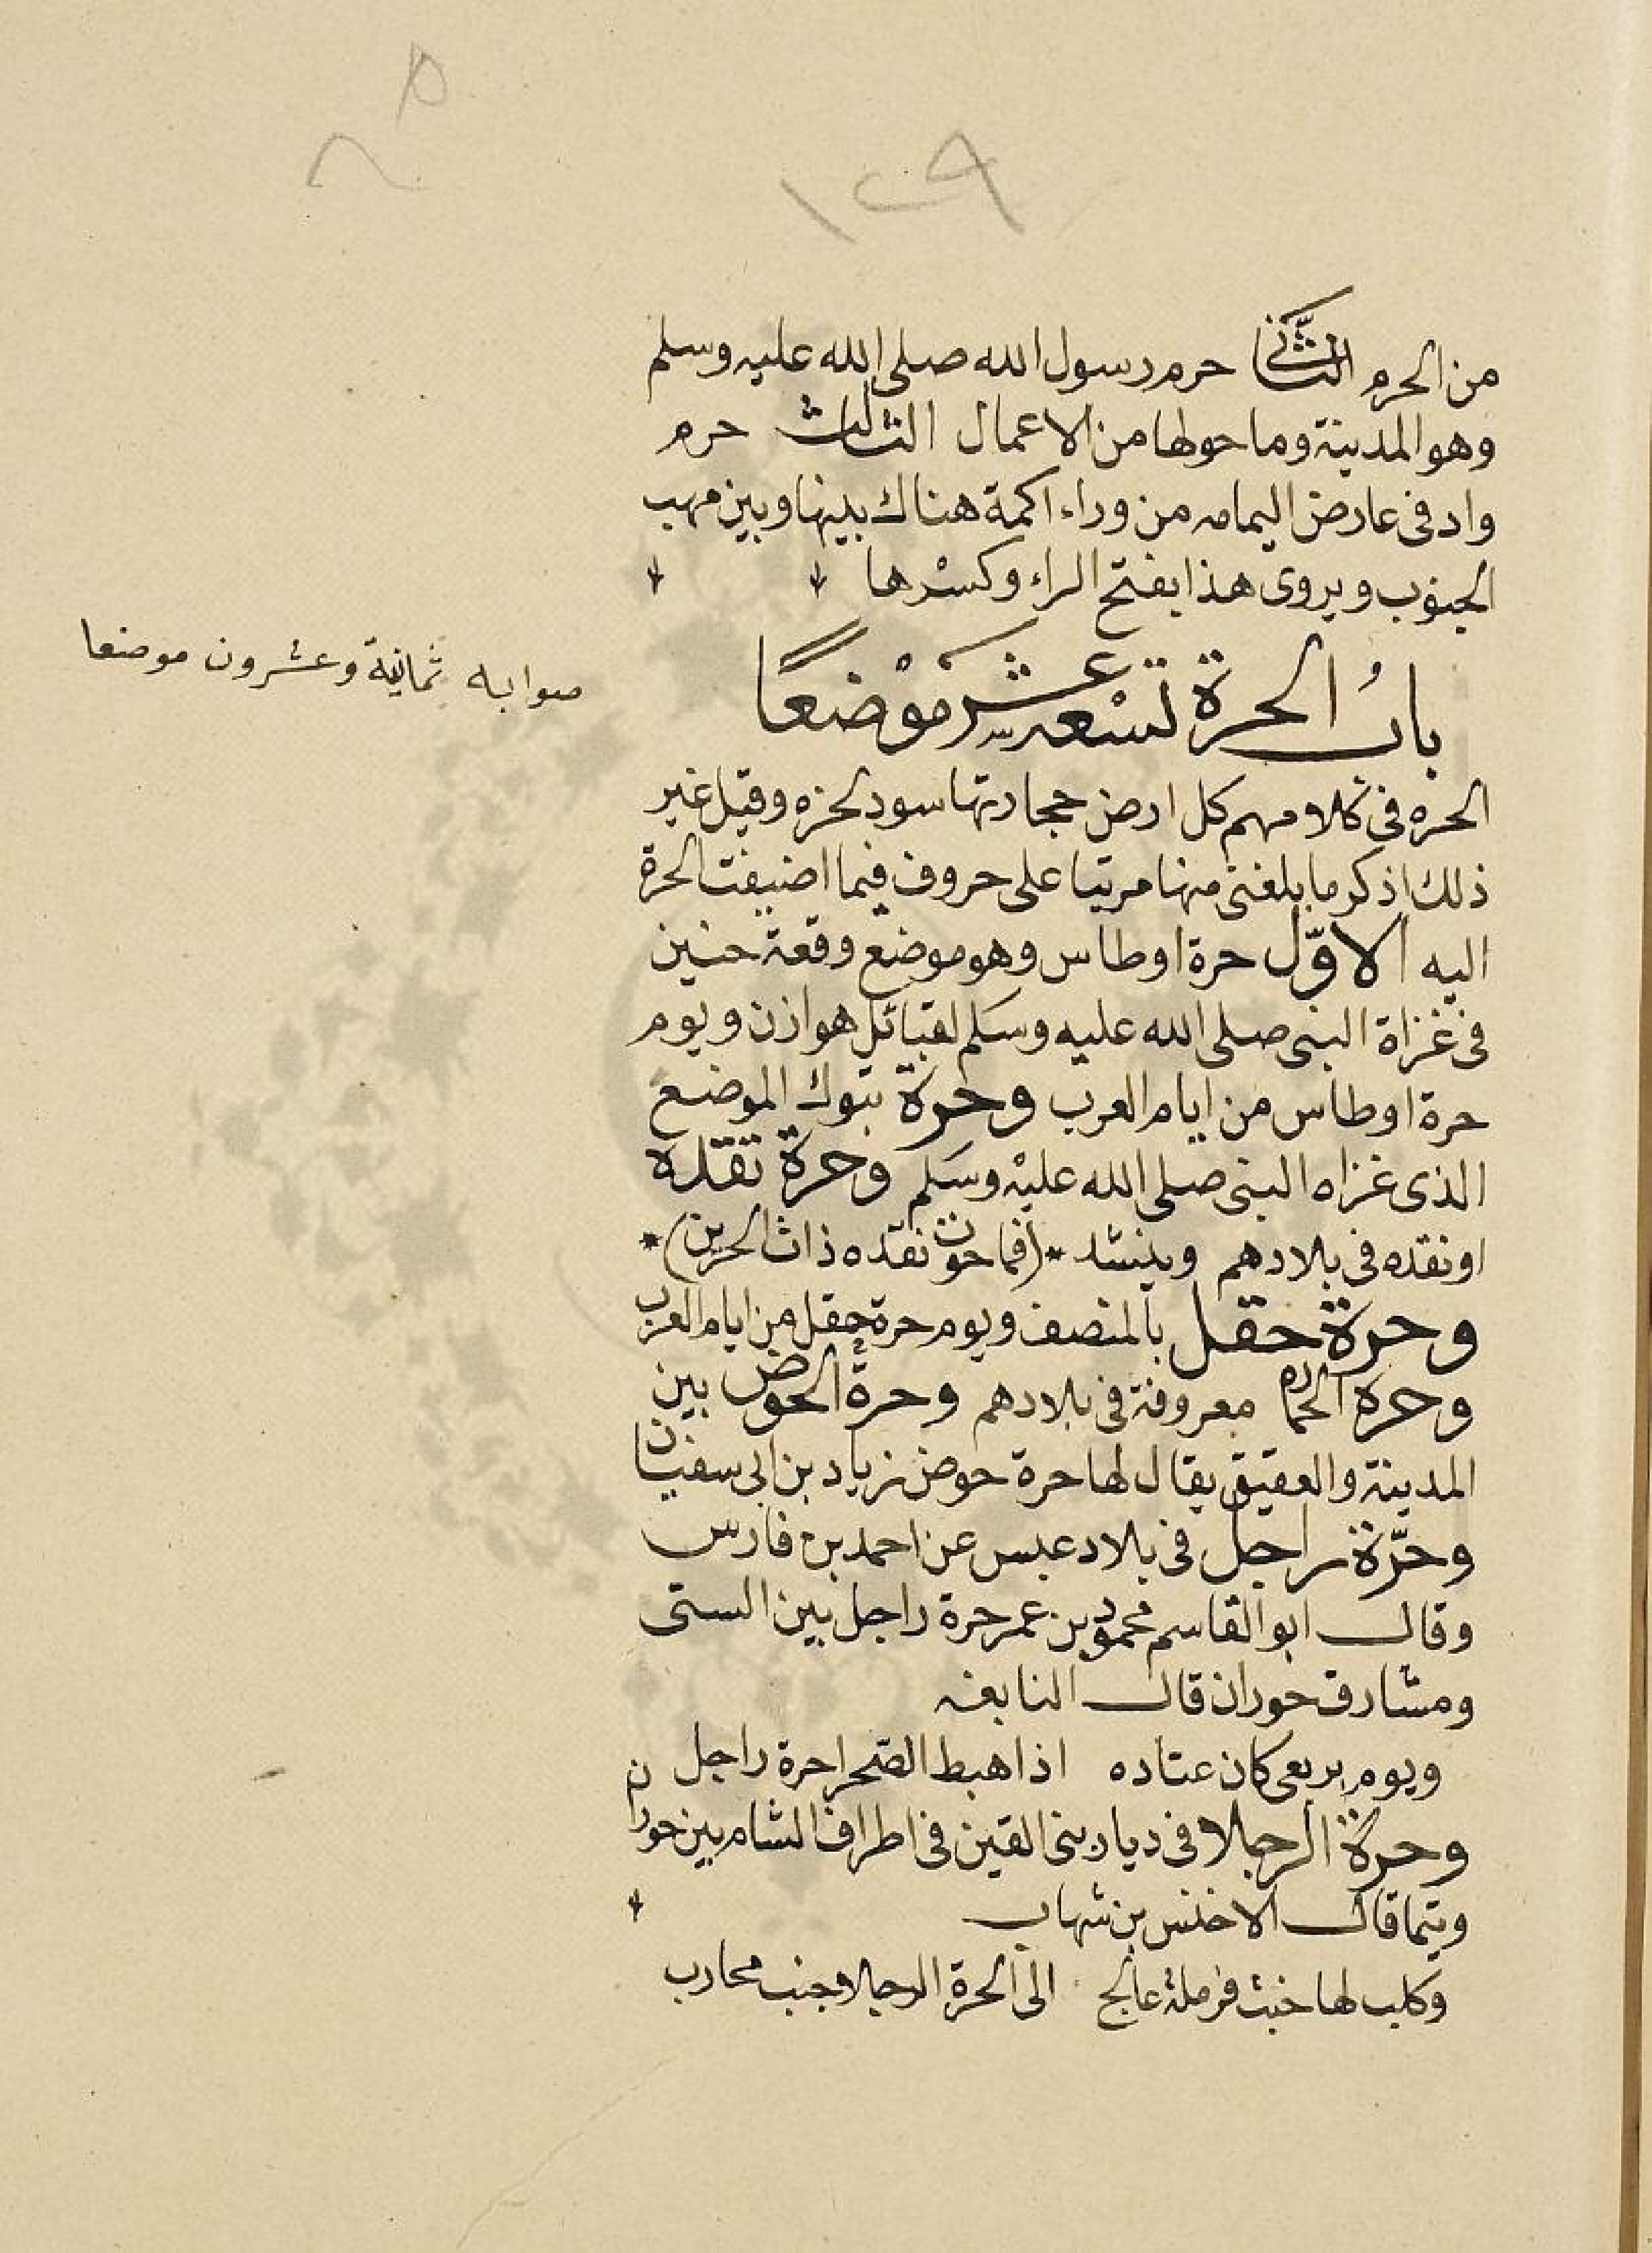 ١٢٩
من الحرم الثاني حرم رسول الله صلى الله عليه وسلم
وهو المدينة وما حولها من الاعمال الثالث حرم
واد فى عارض اليمامه من وراء اكمة هناك بينها وبين مهب
الجنوب ويروى هذا بفتح الراء وكسْرها
بابُ الحرة تسْعه عشر موْضعًا
صوابه ثمانية وعشرون موضعا
الحره فى كلامهم كل ارض حجارتها سود نخره وقيل غير
ذلك اذكر ما بلغنى منها مرتبا على حروف فيما اضيفت الحرة
اليه الاوّل حرة اوطاس وهو موضع وقعة حنين
فى غزاة النبى صلى الله عليه وسلم لقبائل هوازن ويوم
حرة اوطاس من ايام العرب وحرة تبوك الموضع
الذى غزاه النبى صلى الله عليْه وسلم وحرة تقده
او نقده فى بلادهم وينشد * (فما حوت نقده ذات الحرين) *
وحرة حقل بالمنصف ويوم حرة حقل من ايام العرب
وحره الحماره معروفة فى بلادهم وحرة الحوض بين
المدينة والعقيق يقال لها حرة حوض زياد بن ابى سفيان
وحرّة راجل فى بلاد عبس عن احمد بن فارس
وقال ابو القاسم محمود بن عمر حرة راجل بين الستى
ومشارق حوران قال النابغه
ويوم بربعى كان عتاده اذا هبط الصحرا حرة راجل
وحرة الرجلا فى ديار بنى القين فى اطراف الشام بين حوران
وتيما قال الاخنس بن شهاب
وكلب لها خبت فرملة عالج الى الحرة الرجلا جنب محارب